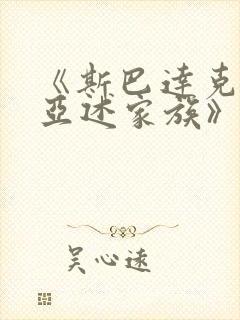 《斯巴达克
亚述家族》
吴心远